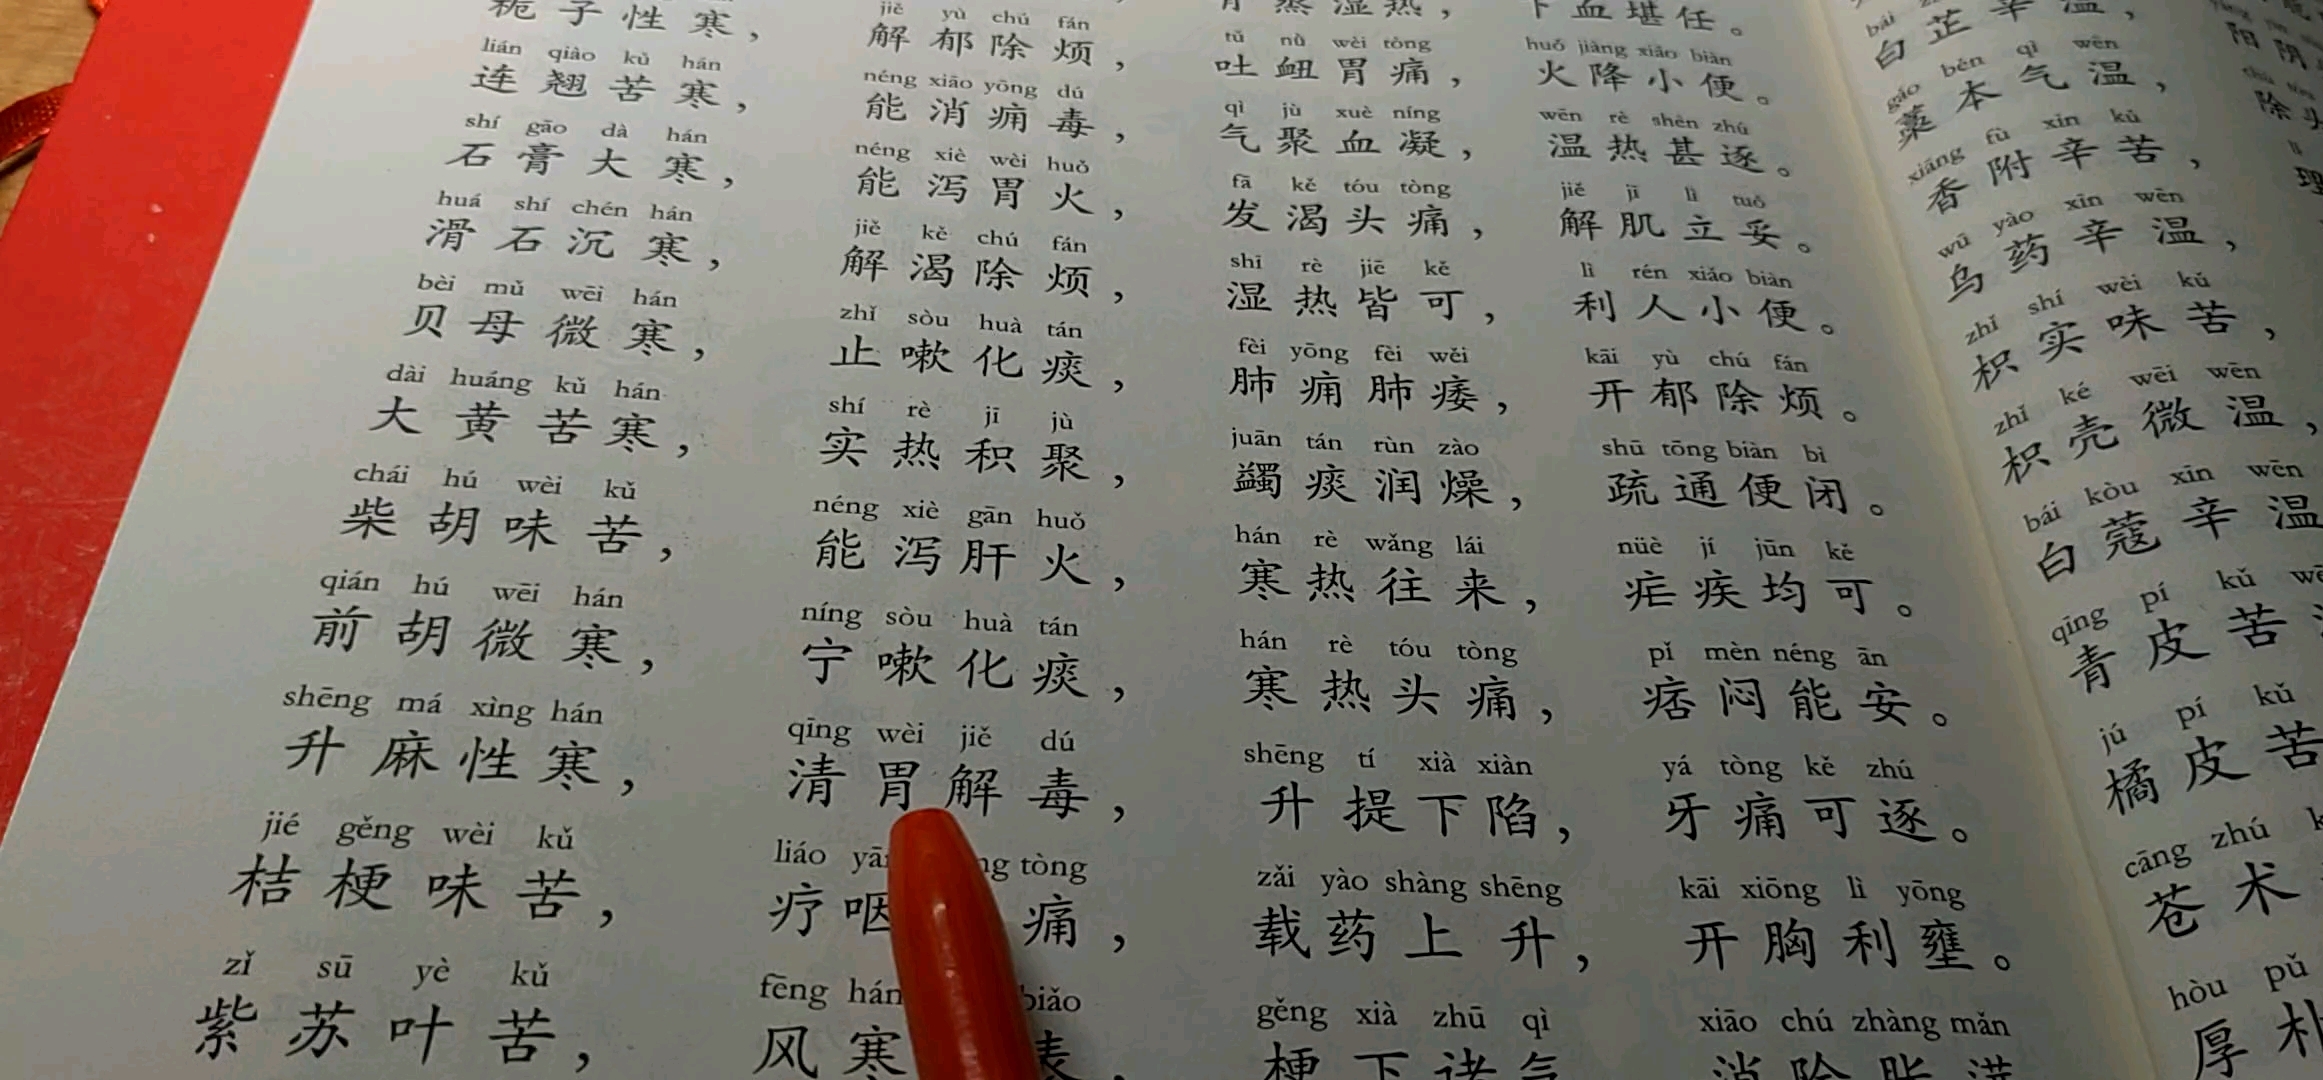 栀子性寒，解郁除烦，吐衄胃痛，火降小便。
jiě yù chú fán
lián qiào kǔ hán néng xiāo yōng dú qì jù xuè níng wēn rè shèn zhú
连翘苦寒，能消痈毒，气聚血凝，温热甚逐。
shí gāo dà hán néng xiè wèi huǒ fā kě tóu tòng jiě jī lì tuǒ
石膏大寒，能泻胃火，发渴头痛，解肌立妥。
huá shí chén hán jiě kě chú fán shī rè jiē kě lì rén xiǎo biàn
滑石沉寒，解渴除烦，湿热皆可，利人小便。
bèi mǔ wēi hán zhǐ sòu huà tán fèi yōng fèi wěi kāi yù chú fán
贝母微寒，止嗽化痰，肺痈肺痿，开郁除烦。
dài huáng kǔ hán shí rè jī jù juān tán rùn zào shū tōng biàn bì
大黄苦寒，实热积聚，蠲痰润燥，疏通便闭。
chái hú wèi kǔ néng xiè gān huǒ hán rè wǎng lái nüè jí jūn kě
柴胡味苦，能泻肝火，寒热往来，疟疾均可。
qián hú wēi hán níng sòu huà tán hán rè tóu tòng pǐ mèn néng ān
前胡微寒，宁嗽化痰，寒热头痛，痞闷能安。
shēng má xìng hán qīng wèi jiě dú shēng tí xià xiàn yá tòng kě zhú
升麻性寒，清胃解毒，升提下陷，牙痛可逐。
jié gěng wèi kǔ liáo tòng zǎi yào shàng shēng kāi xiōng lì yōng
桔梗味苦，疗咽痛，载药上升，开胸利壅。
zǐ sū yè kǔ fēng hán biǎo gěng xià zhū qì xiāo chú zhàng mǎn
紫苏叶苦，风寒表，梗下诸气消除胀满
白芷辛温，
gǎo běn qì wēn
藁本气温，
xiāng fù xīn kǔ
香附辛苦，
wū yào xīn wēn
乌药辛温，
zhǐ shí wèi kǔ
枳实味苦，
zhǐ ké wēi wēn
枳壳微温，
bái kòu xīn wēn
白蔻辛温
qīng pí kǔ
青皮苦
jú pí kǔ
橘皮苦
cāng zhú
苍术
hòu pǔ
厚朴